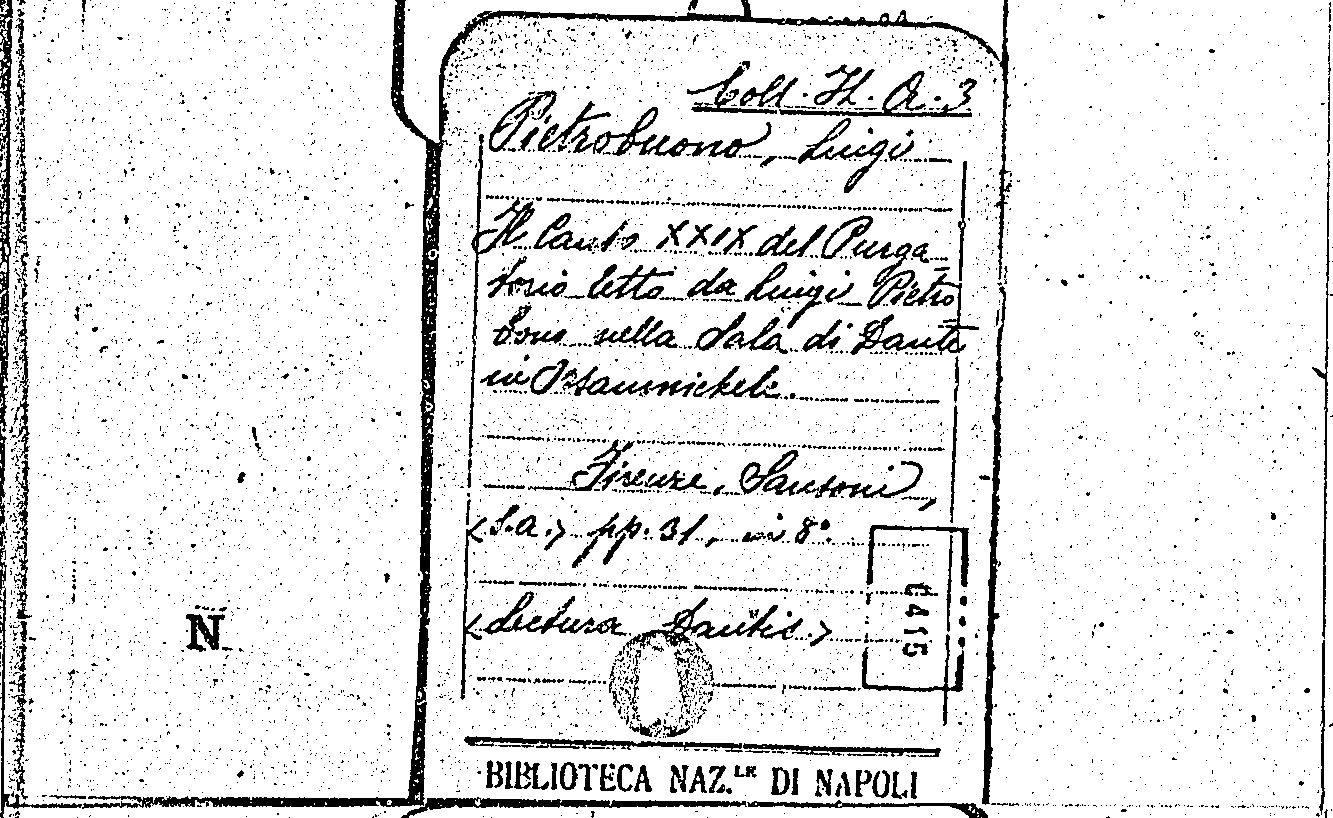 Coll. It. A. 3
Pietrobuono, Luigi
Il Canto XXIX del Purga
torio letto da Luigi Pietro
bono nella Sala di Dante
in Orsanmichele.
Firenze, Sansoni,
<s.a.> pp. 31, in 8°.
<Lectura Dantis>
C415
N
BIBLIOTECA NAZ.LE DI NAPOLI